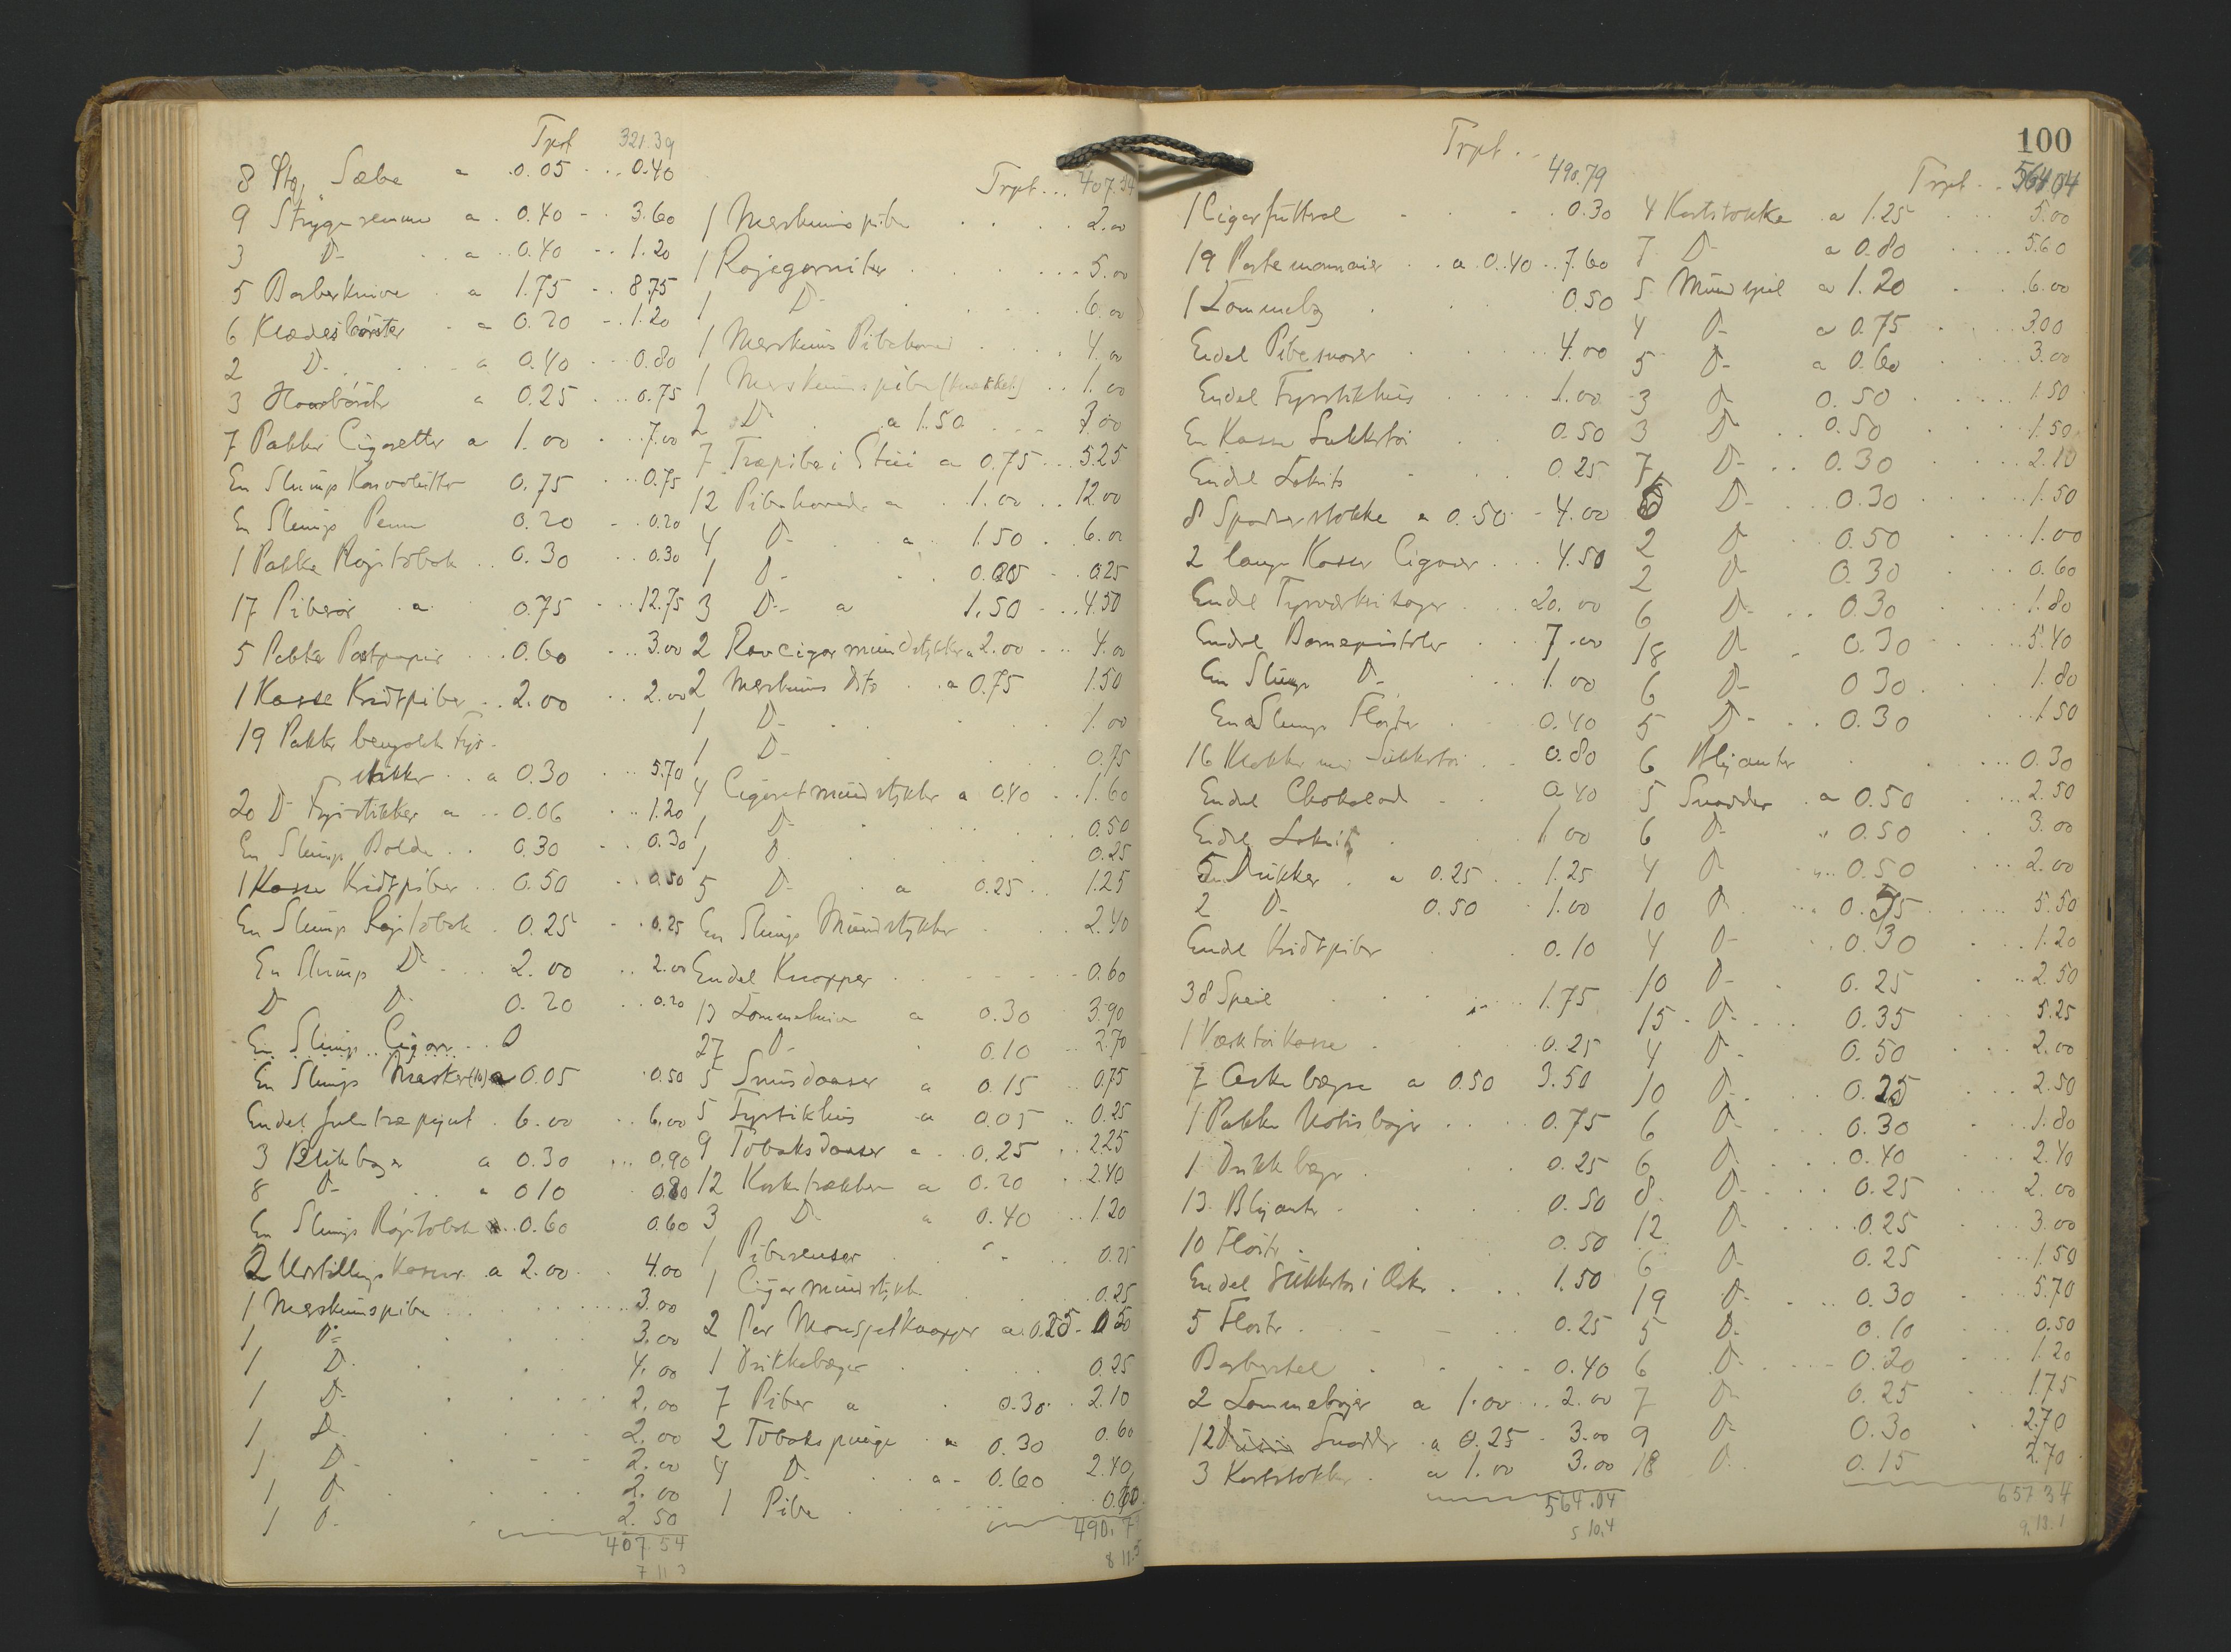 Trpt 321.39
8 Stg, Sæbe a 0.05 0.40
9 Strygeremme a 0.40 3.60
3 D- a 0.40 1.20
5 Barberknive a 1.75 8.75
6 Klædesbörster a 0.20 1.20
2 D- a 0.40 0.80
3 Haarbörster a 0.25 0.75
7 Pakker Cigaretter a 1.00 7.00
En Slump 0.75 0.75
En Slump Penne 0.20 0.20
1 Pakke Røgtobak 0.30 0.30
17 Piberør a 0.75 12.75
5 Pakker Postpapir 0.60 3.00
1 Kasse Kridtpiber 2.00 2.00
19 Pakker bengalske Fyr-
stikker a 0.30 5.70
20 D- Fyrstikker a 0.06 1.20
En Slump Bolde 0.30 0.30
1 Kasse Kridtpiber 0.50 0.50
En Slump Røgtobak 0.25 0.25
En Slump D- 2.00 2.00
D D- 0.20 0.20
En Slump Cigarer 0
En Slump Masker (10) a 0.05 0.50
Endel Juletræpynt 6.00 6.00
3 Blikbøger a 0.30 0.90
8 D- a 0.10 0.80
En Slump Røgtobak 0.60 0.60
2 Udstillings Kasser a 2.00 4.00
1 Merskumspibe 3.00
1 D- 3.00
1 D- 4.00
1 D- 2.00
1 D- 2.00
1 D- 2.00
1 D- 2.00
1 D- 2.50
407.54
7 11 3
Trpt 407.54
1 Merskumspibe 2.00
1 Røgegarnitur 5.00
1 D- 6.00
1 Merskums Pibehoved 4.00
1 Merskumspibe (knækket) 1.00
2 D- a 1.50 3.00
7 Træpiber i Etui a 0.75 5.25
12 Pibehoveder a 1.00 12.00
4 D- a 1.50 6.00
1 D- 0.25 0.25
3 D- a 1.50 4.50
2 Ravcigarmundstykker a 2.00 4.00
2 Merskums Dito a 0.75 1.50
1 D- 1.00
1 D- 0.75
4 Cigaretmundstykker a 0.40 1.60
1 D- 0.50
1 D- 0.25
5 D- a 0.25 1.25
En Slump Mundstykker 2.40
Endel Knapper 0.60
13 Lommeknive a 0.30 3.90
27 D- 0.10 2.70
5 Snusdaaser a 0.15 0.75
5 Fyrstikhus a 0.05 0.25
9 Tobaksdaaser a 0.25 2.25
12 Korketrækkere a 0.20 2.40
3 D- a 0.40 1.20
1 Piberenser 0.25
1 Cigarmundstykke 0.25
2 Par Mansjetknapper a 0.25 0.50
1 Drikkebæger 0.25
7 Piber a 0.30 2.10
2 Tobakspunge a 0.30 0.60
4 D- a 0.60 2.40
1 Pibe
490.7
8 11.5
Trpt 490.79
1 Cigarfutteral 0.30
19 Portemonnaier a 0.40 7.60
1 Lommebog 0.50
Endel Pibesnorer 4.00
Endel Fyrstikhus 1.00
En Kasse Sukkertøi 0.50
Endel Lakrits 0.25
8 Spadserstokke a 0.50 4.00
2 lange Kasser Cigarer 4.50
Endel Fyrværkerisager 20.00
Endel Barnepistoler 7.00
En Slump D- 1.00
En Slump Fløiter 0.40
16 Klokker med Sukkertøi 0.80
Endel Chokolad 0.40
Endel Lakrits 1.00
5 Dukker a 0.25 1.25
2 D- 0.50 1.00
Endel Kridtpiber 0.10
38 Speil 1.75
1 Værktøikasse 0.25
7 Askebægre a 0.50 3.50
1 Pakke Notisbøger 0.75
1 Drikkbæger 0.25
13 Blyanter 0.50
10 Fløiter 0.50
Endel Sukkertøi i Æsker 1.50
5 Fløiter 0.25
Barberstel 0.40
2 Lommebøger a 1.00 2.00
12 Snadder a 0.25 3.00
3 Kortstokker a 1.00 3.00
564.04
5 10,4
100
Trpt 564.04
4 Kortstokke a 1.25 5.00
7 D- a 0.80 5.60
5 Mundspil a 1.20 6.00
4 D- a 0.75 3.00
5 D- a 0.60 3.00
3 D 0.50 1.50
3 D- 0.50 1.50
7 D- 0.30 2.10
5 D- 0.30 1.50
2 D 0.50 1.00
2 D- 0.30 0.60
6 D- 0.30 1.80
18 D 0.30 5.40
6 D- 0.30 1.80
5 D- 0.30 1.50
6 Blyanter 0.30
5 Snadder a 0.50 2.50
6 D- " 0.50 3.00
4 D " 0.50 2.00
10 D- 0.55 5.50
4 D- 0.30 1.20
10 D- 0.25 2.50
15 D- 0.35 5.25
4 D- 0.50 2.00
10 D- 0.25 2.50
6 D- 0.30 1.80
6 D- 0.40 2.40
8 D- 0.25 2.00
12 D- 0.25 3.00
6 D- 0.25 1.50
19 D- 0.30 5.70
5 D- 0.10 0.50
6 D- 0.20 1.20
7 D- 0.25 1.75
9 D- 0.30 2.70
18 D- 0.15 2.70
657.34
9,13.1